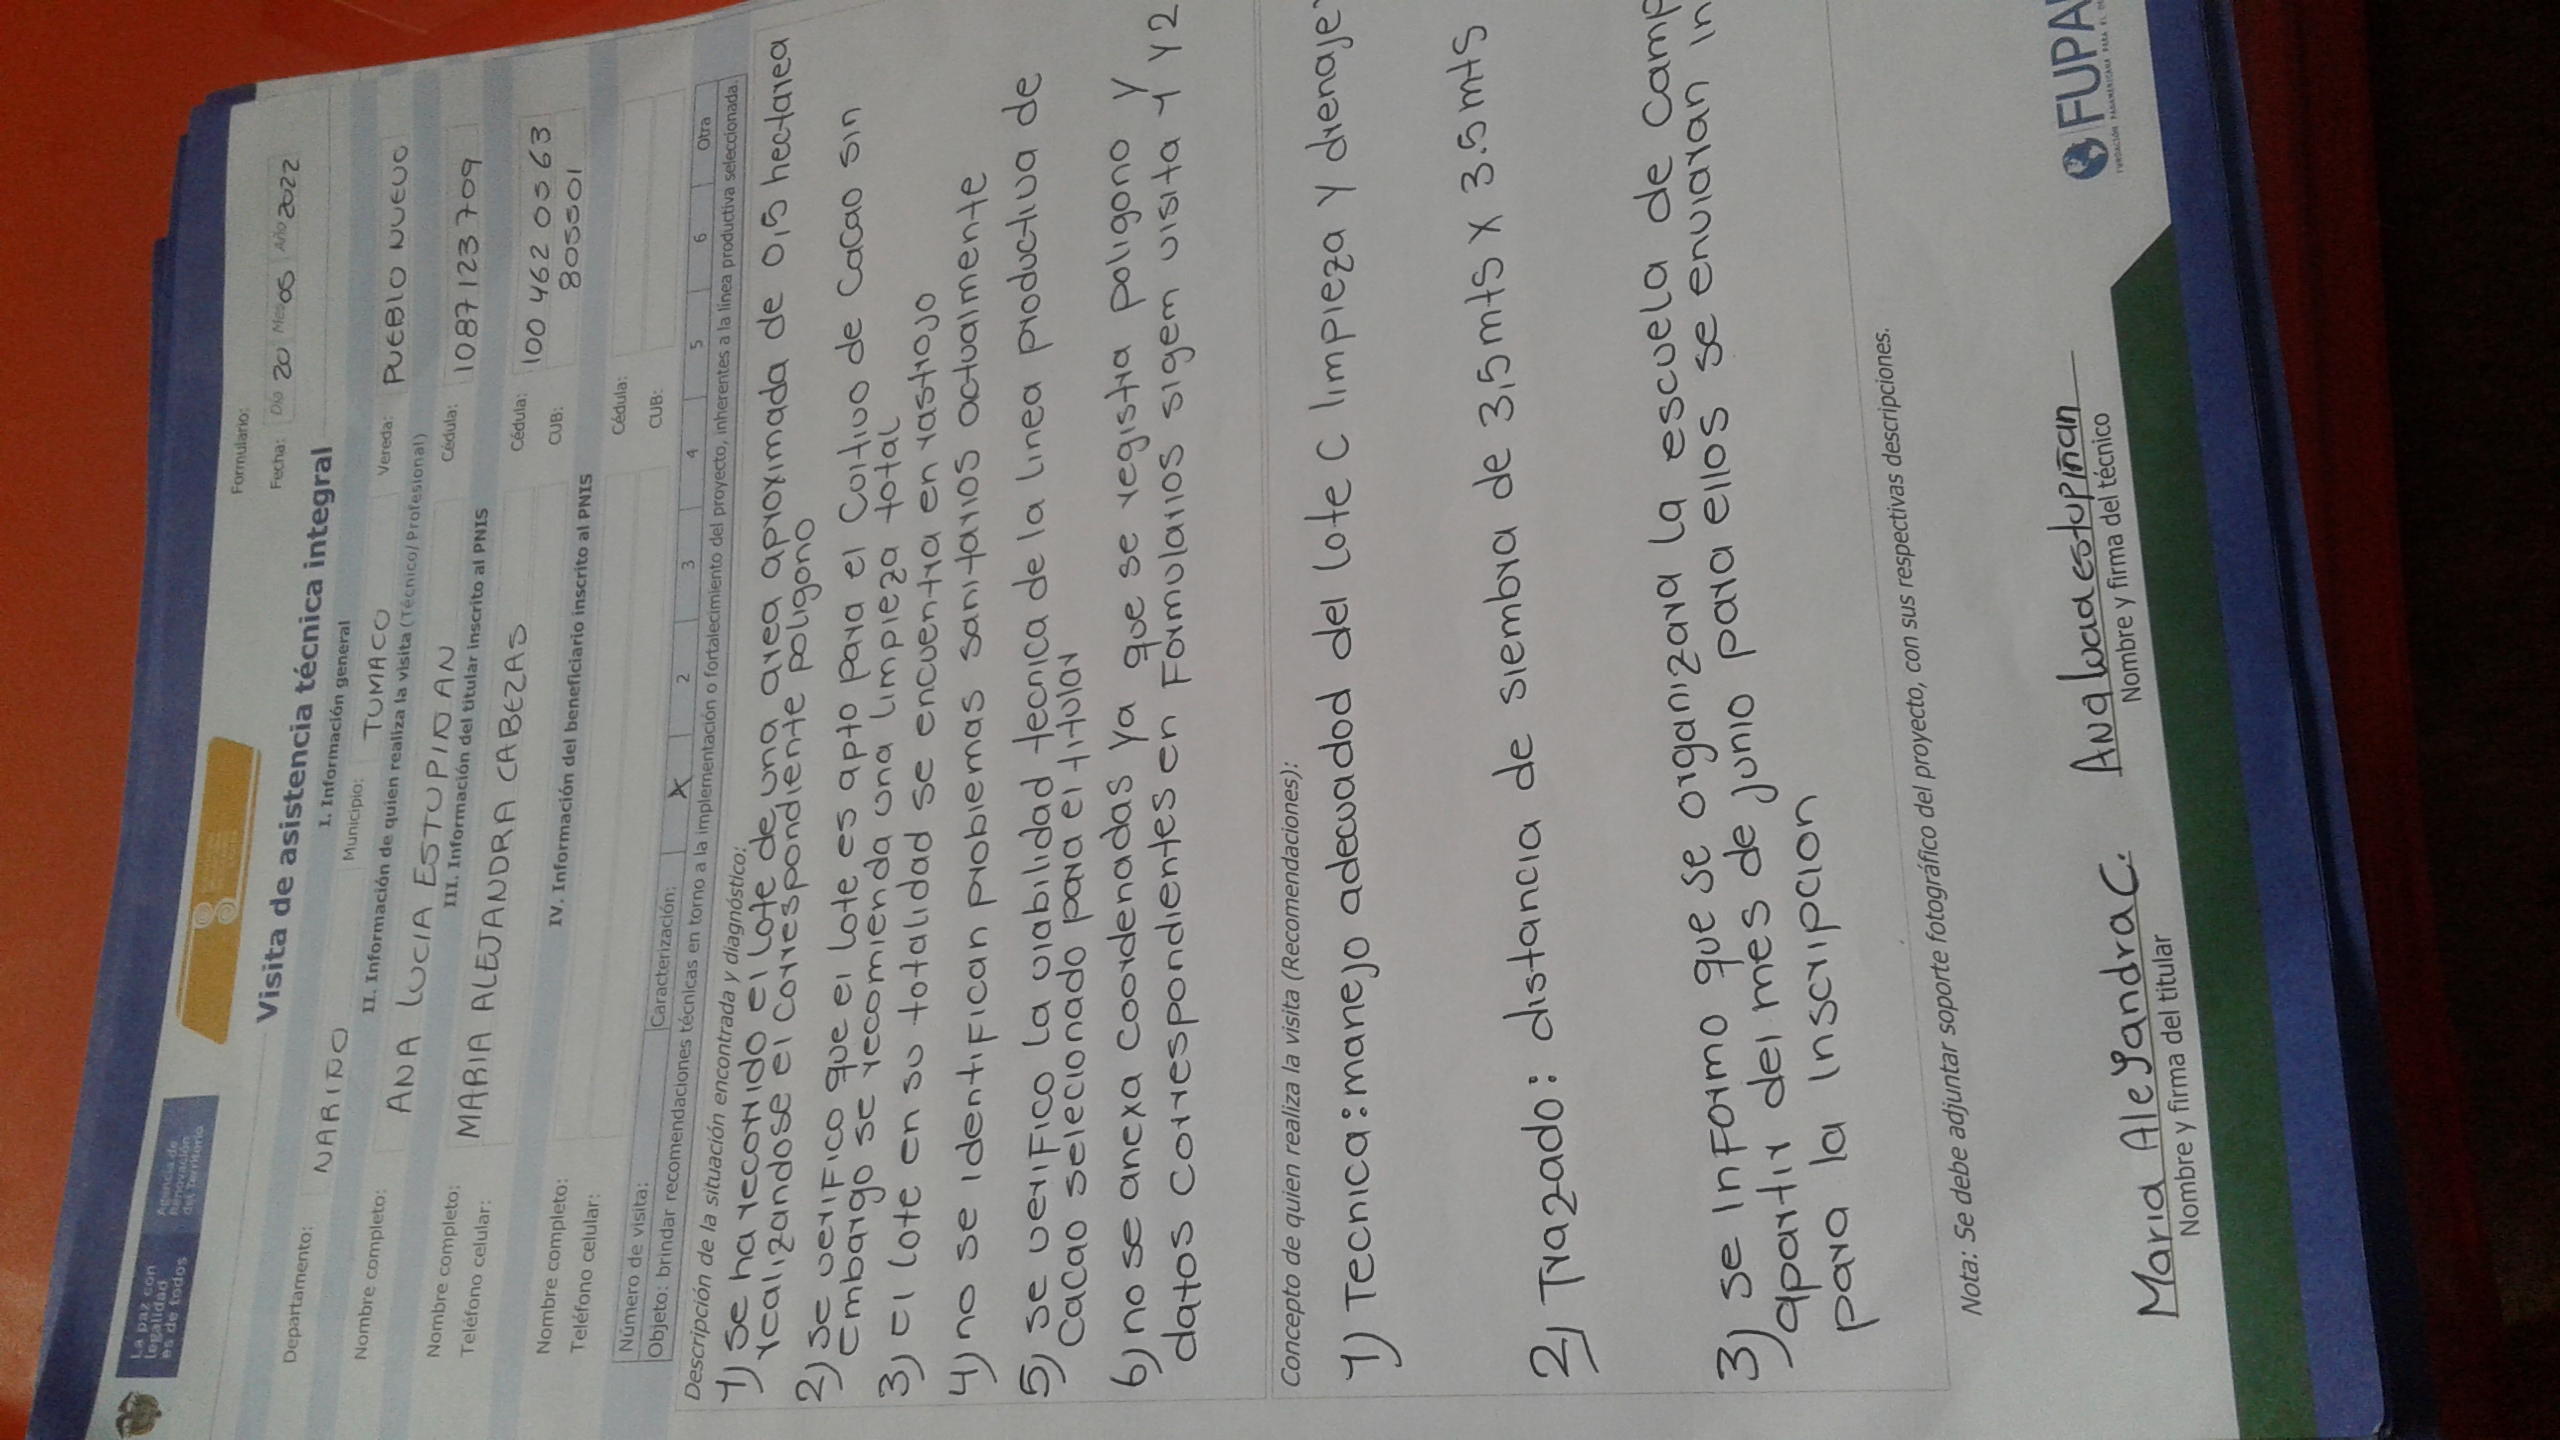 La paz con
legalidad
es de todos
Agencia de
Renovación
del Territorio
Formulario:
Visita de asistencia técnica integral
Fecha: Día 20 Mes 05 Año 2022
I. Información general
Departamento: NARIÑO Municipio: TUMACO Vereda: PUEBLO NUEVO
II. Información de quien realiza la visita (Técnico/Profesional)
Nombre completo: ANA LUCIA ESTUPIÑAN Cédula: 1087123709
III. Información del titular inscrito al PNIS
Nombre completo: MARIA ALEJANDRA CABEZAS Cédula: 100 462 0563
Teléfono celular: CUB: 805501
IV. Información del beneficiario inscrito al PNIS
Nombre completo: Cédula:
Teléfono celular: CUB:
Número de visita: Caracterización: X 2 3 4 5 6 Otra
Objeto: brindar recomendaciones técnicas en torno a la implementación o fortalecimiento del proyecto, inherentes a la línea productiva seleccionada.
Descripción de la situación encontrada y diagnóstico:
1) se ha recorrido el lote de una area aproximada de 0,5 hectarea
realizandose el correspondiente poligono
2) se verifico que el lote es apto para el coltivo de cacao sin
embargo se recomienda una limpieza total
3) el lote en su totalidad se encuentra en rastrojo
4) no se identifican problemas sanitarios actualmente
5) se verifico la viabilidad tecnica de la linea productiva de
cacao selecionado para el titular
6) no se anexa coordenadas ya que se registra poligono y
datos correspondientes en formularios sigem visita 1 y 2
Concepto de quien realiza la visita (Recomendaciones):
1) Tecnica: manejo adecuadod del lote C limpieza y drenaje
2) Trazado: distancia de siembra de 3,5 mts x 3.5 mts
3) se informo que se organizara la escuela de camp
apartir del mes de junio para ellos se enviaran in
para la inscripcion
Nota: Se debe adjuntar soporte fotográfico del proyecto, con sus respectivas descripciones.
Maria Aleyandra C. Ana lucia estupiñan
Nombre y firma del titular Nombre y firma del técnico
FUPA